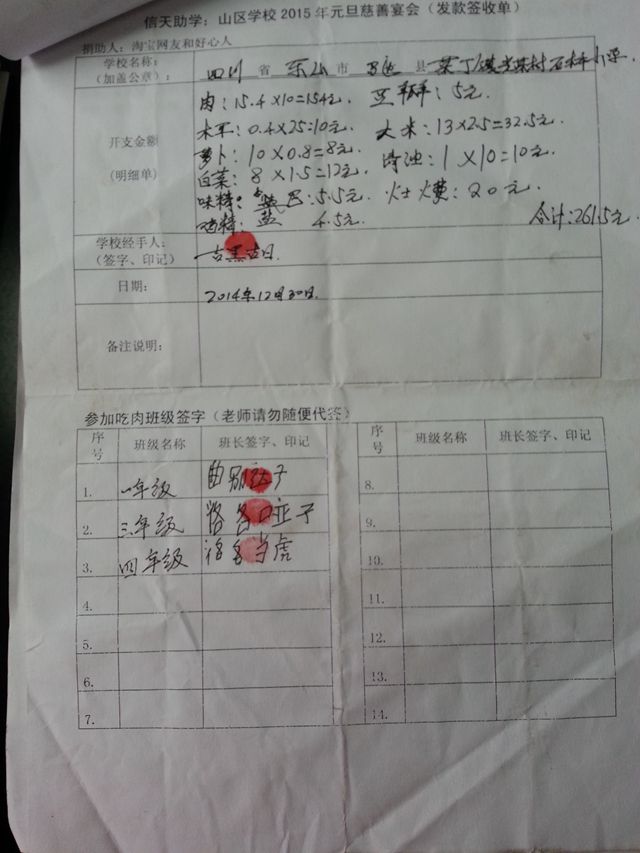 信天助学：山区学校2015年元旦慈善宴会（发款签收单）
捐助人：淘宝网友和好心人
学校名称：
（加盖公章）：
四川 省 乐山 市 马边 县
开支金额
（明细单）
肉：15.4×10=154元. 豆瓣：5元.
木耳：0.4×25=10元. 大米：13×2.5=32.5元.
萝卜：10×0.8=8元. 清油：1×10=10元.
白菜：8×1.5=12元.
味精： 5.5元. 火士费：20元.
鸡精：盐 4.5元. 合计：261.5元.
学校经手人：
（签字、印记）
吉黑古日.
日期：
2014年12月30日.
备注说明：
参加吃肉班级签字（老师请勿随便代签）
序号 班级名称 班长签字、印记 序号 班级名称 班长签字、印记
1. 一年级 曲别 子 8.
2. 三年级 洛各 子 9.
3. 四年级 洛 虎 10.
4. 11.
5. 12.
6. 13.
7. 14.